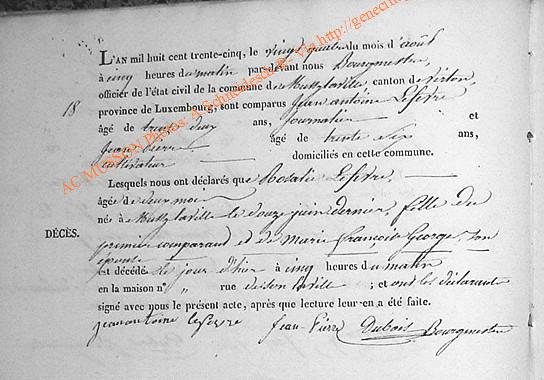 L'AN mil huit cent trente-cinq, le vingt quatre du mois d'août
à cinq heures du matin par-devant nous Bourgmestre,
officier de l'état civil de la commune de Mussy la ville, canton de Virton,
18 province de Luxembourg, sont comparus Jean antoine Lefevre
âgé de trente deux ans, journalier et
Jean Pierre âgé de trente six ans,
cultivateur domiciliés en cette commune.
Lesquels nous ont déclarés que Rosalie Lefevre,
âgée de deux mois
née à Mussy la Ville le douze juin dernier, fille du
DÉCÈS. premier comparant et de Marie françoise George, son
épouse
est décédé le jour d'hier à cinq heures du matin
en la maison nº " rue de son laville ; et ont les déclarants
signé avec nous le présent acte, après que lecture leur en a été faite.
jean antoine lefevre Jean-Pierre Dubois Bourgmestre
AC MUSSON Photos: A. Schneidesch via http://genecm